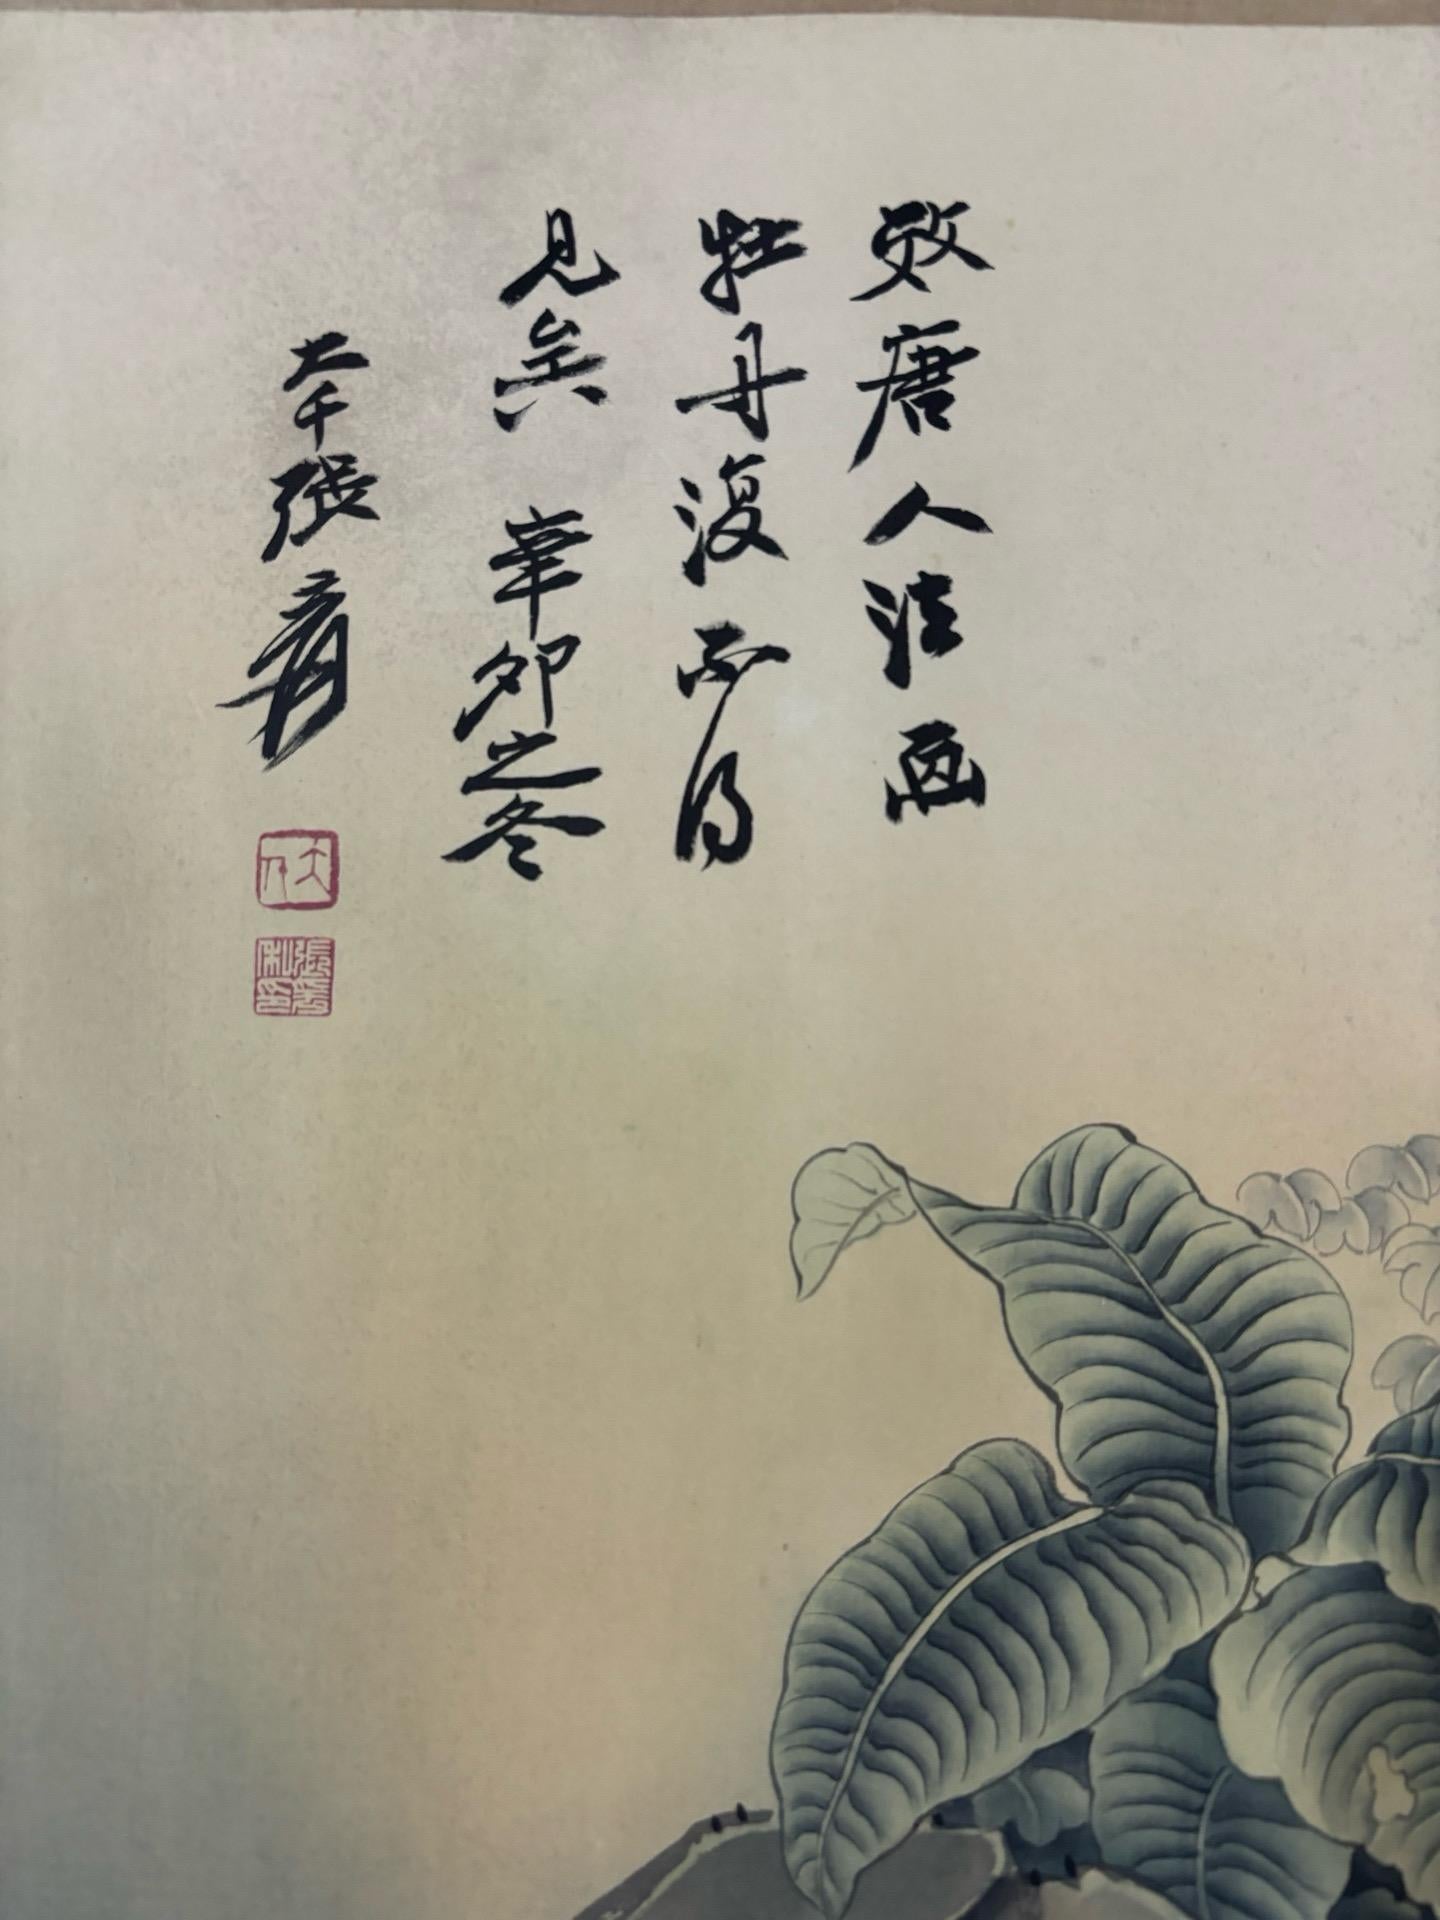 效唐人法畫
牡丹復不得
見矣 辛卯之冬
大千張爰
大千
張爰私印